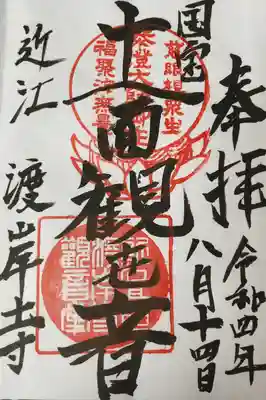 奉拝
令和四年八月十四日
国宝
十一面観世音
近江 渡岸寺
慈眼視衆生
福聚海無量